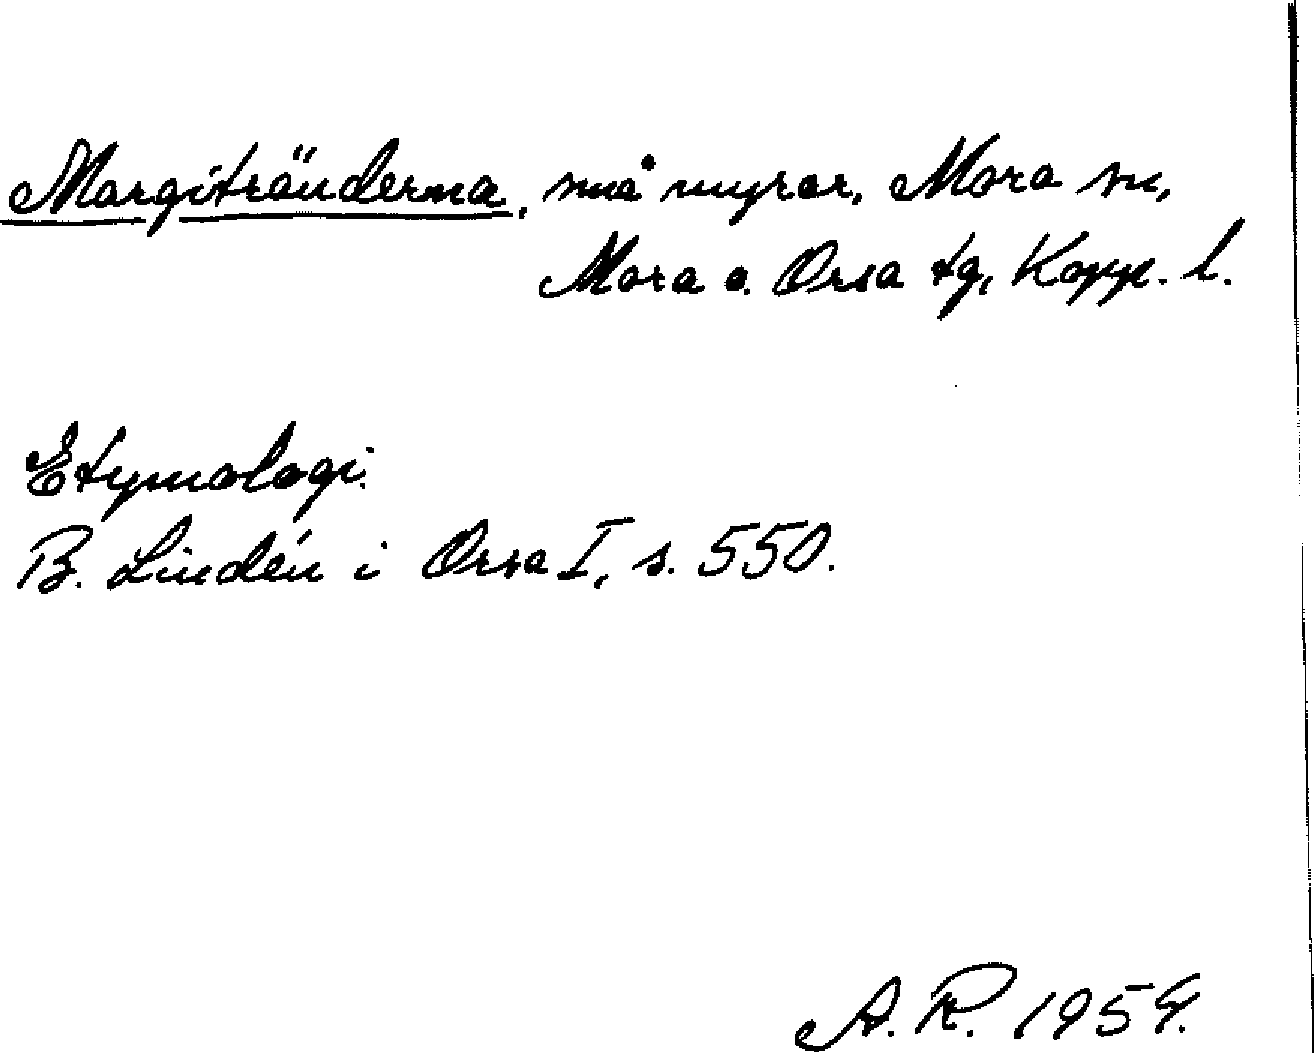 Margitränderna, små myrar, Mora sn,
Mora o. Orsa tg, Kopp. l.
Etymologi.
B. Lindén i Orsa I, s. 550.
A. R. 1959.